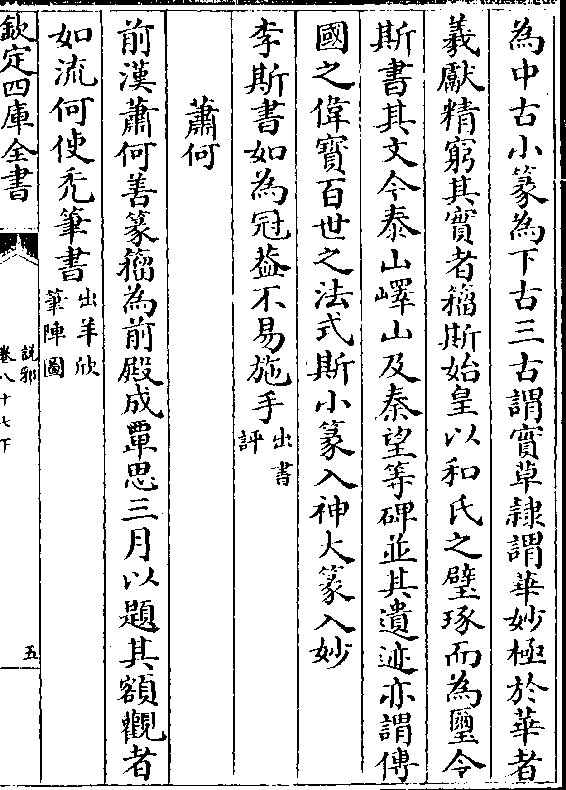 為中古小篆為下古三古謂實草隸謂華妙極於華者
羲獻精窮其實者籀斯始皇以和氏之璧琢而為璽令
斯書其文今泰山嶧山及秦望等碑並其遺迹亦謂傳
國之偉寳百世之法式斯小篆入神大篆入妙
李斯書如為冠葢不易施手出書評
蕭何
前漢蕭何善篆籀為前殿成覃思三月以題其額觀者
如流何使禿筆書出羊欣筆陣圖
欽定四庫全書
說郛
卷八十七下
五